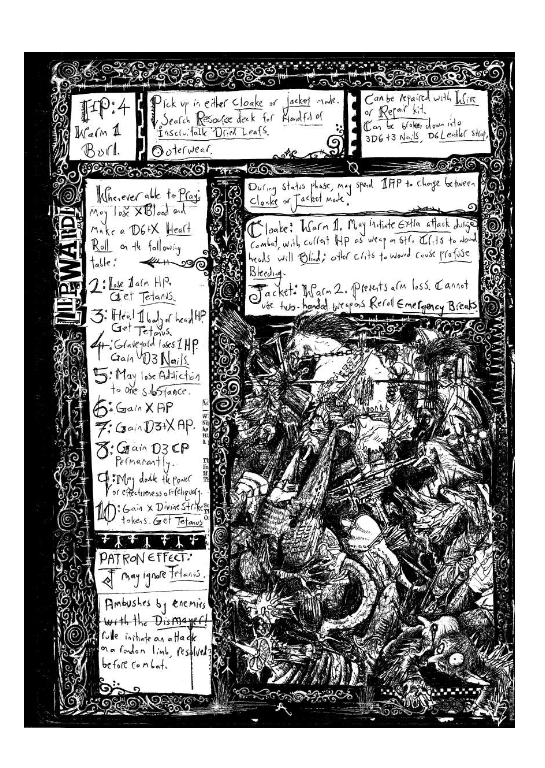 HP: 4
Warm 1
Pick up in either Cloake or Jacket mode.
Search Resource deck for Handful of
Inscrutable Dried Leafs.
Outerwear.
Can be repaired with Wire
or Repair kit.
Can be broken down into
3D6+3 Nails, D6 Leather Strap.
UPWARD!
Whenever able to Pray:
May lose X Blood and
make a D6+X Heart
Roll on the following
table:
2: Lose 1 arm HP.
Get Tetanus.
3: Heal 1 body or head HP
Get Tetanus.
4: Graveyard loses 1 HP.
Gain D3 Nails
5: May lose Addiction
to one substance.
6: Gain X AP
7: Gain D3+X AP.
8: Gain D3 CP
Permanently.
9: May double the power
or effectiveness of
10: Gain X Divine Strike
tokens. Get Tetanus
PATRON EFFECT:
I may ignore Tetanus.
Ambushes by enemies
with the Dismayer!
rule initiate an attack
on a random limb, resolved
before combat.
During status phase, may spend 1AP to change between
Cloake or Jacket mode.
Cloake: Warm 1. May initiate Extra attack during
combat, with current HP as weapon str. Crits to wound
heads will Blind; other crits to wound cause profuse
Bleeding.
Jacket: Warm 2. Prevents arm loss. Cannot
use two-handed weapons Reroll Emergency Breaks